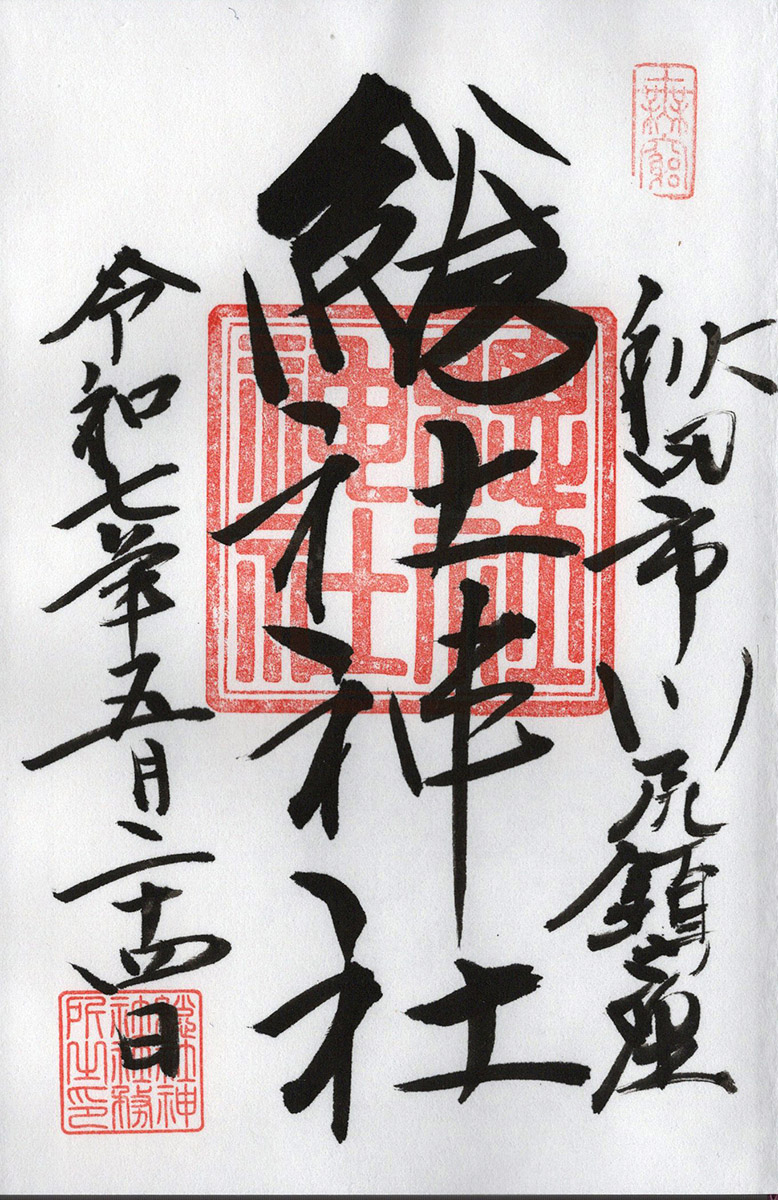 秋田市川尻鎮座
總社神社
令和七年五月二十四日
總社神社
總社神社務所之印